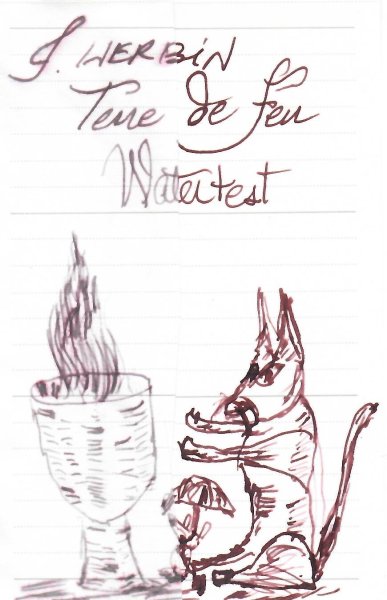 J. HERBIN
Terre de Feu
Watertest